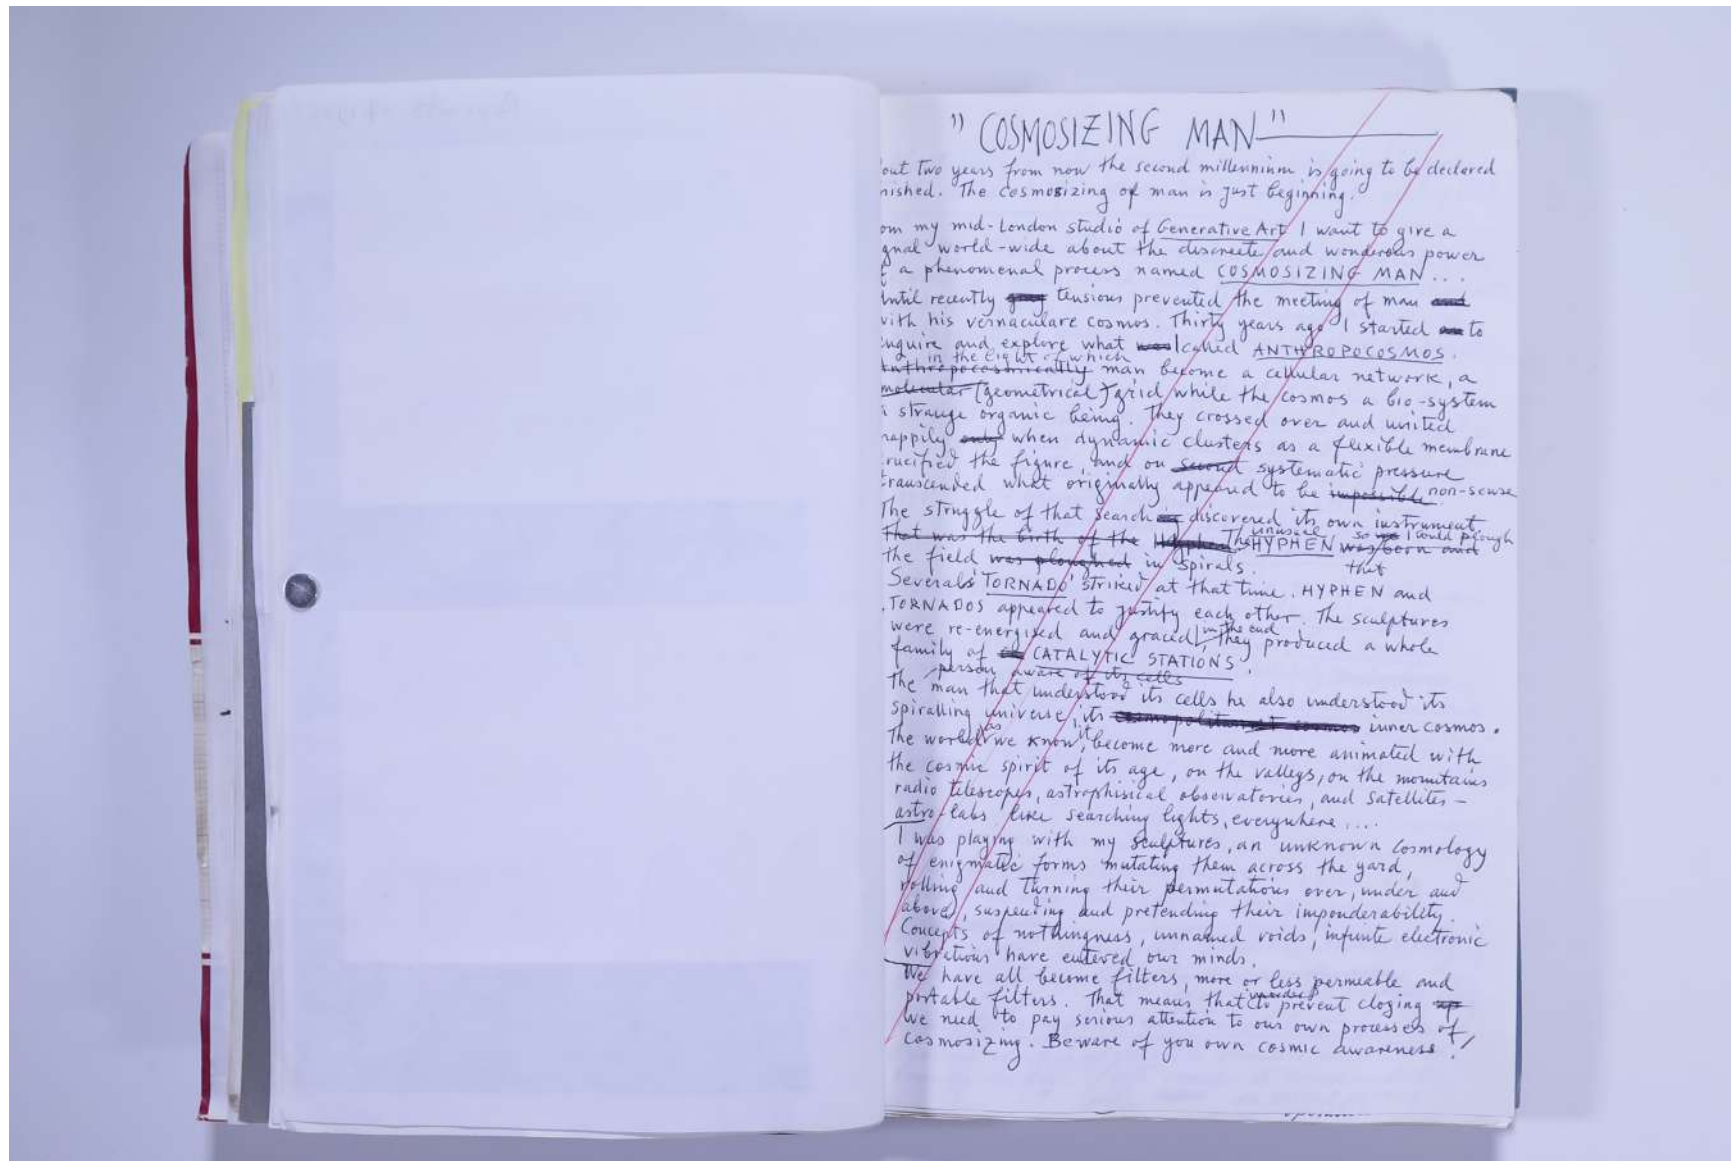 " COSMOSIZING MAN "
out two years from now the second millennium is going to be declared
nished. The cosmosizing of man is just beginning.
om my mid-London studio of Generative Art I want to give a
gnal world-wide about the discreete and wonderous power
a phenomenal process named COSMOSIZING MAN...
Until recently tensions prevented the meeting of man and
with his vernaculare cosmos. Thirty years ago I started to
nquire and explore what was I called ANTHROPOCOSMOS.
in the light of which
Anthropocosmically man become a cellular network, a
molecular (geometrical) grid while the cosmos a bio-system
a strange organic being. They crossed over and united
happily only when dynamic clusters as a flexible membrane
rucified the figure, and on second systematic pressure
transcended what originally appeared to be impossible non-sense
The struggle of that search discovered its own instrument.
unusual so I could plough
That was the birth of the Hyphen The HYPHEN was born and
the field was ploughed in spirals. that
Severals 'TORNADO' striked at that time. HYPHEN and
TORNADOS appeared to justify each other. The sculptures
were re-energised and graced, in the end they produced a whole
family of CATALYTIC STATIONS.
person aware of its cells
The man that understood its cells he also understood its
spiralling universe, its cosmopolitan inner cosmos.
The world as we know it, become more and more animated with
the cosmic spirit of its age, on the valleys, on the mountains
radio telescopes, astrophisical observatories, and satellites -
astro-labs like searching lights, everywhere....
I was playing with my sculptures, an unknown cosmology
of enigmatic forms mutating them across the yard,
rolling and turning their permutations over, under and
above, suspending and pretending their imponderability.
Concepts of nothingness, unnamed voids, infinite electronic
vibrations have entered our minds.
We have all become filters, more or less permeable and
portable filters. That means that in order to prevent closing up
we need to pay serious attention to our own processes of
cosmosizing. Beware of you own cosmic awareness!